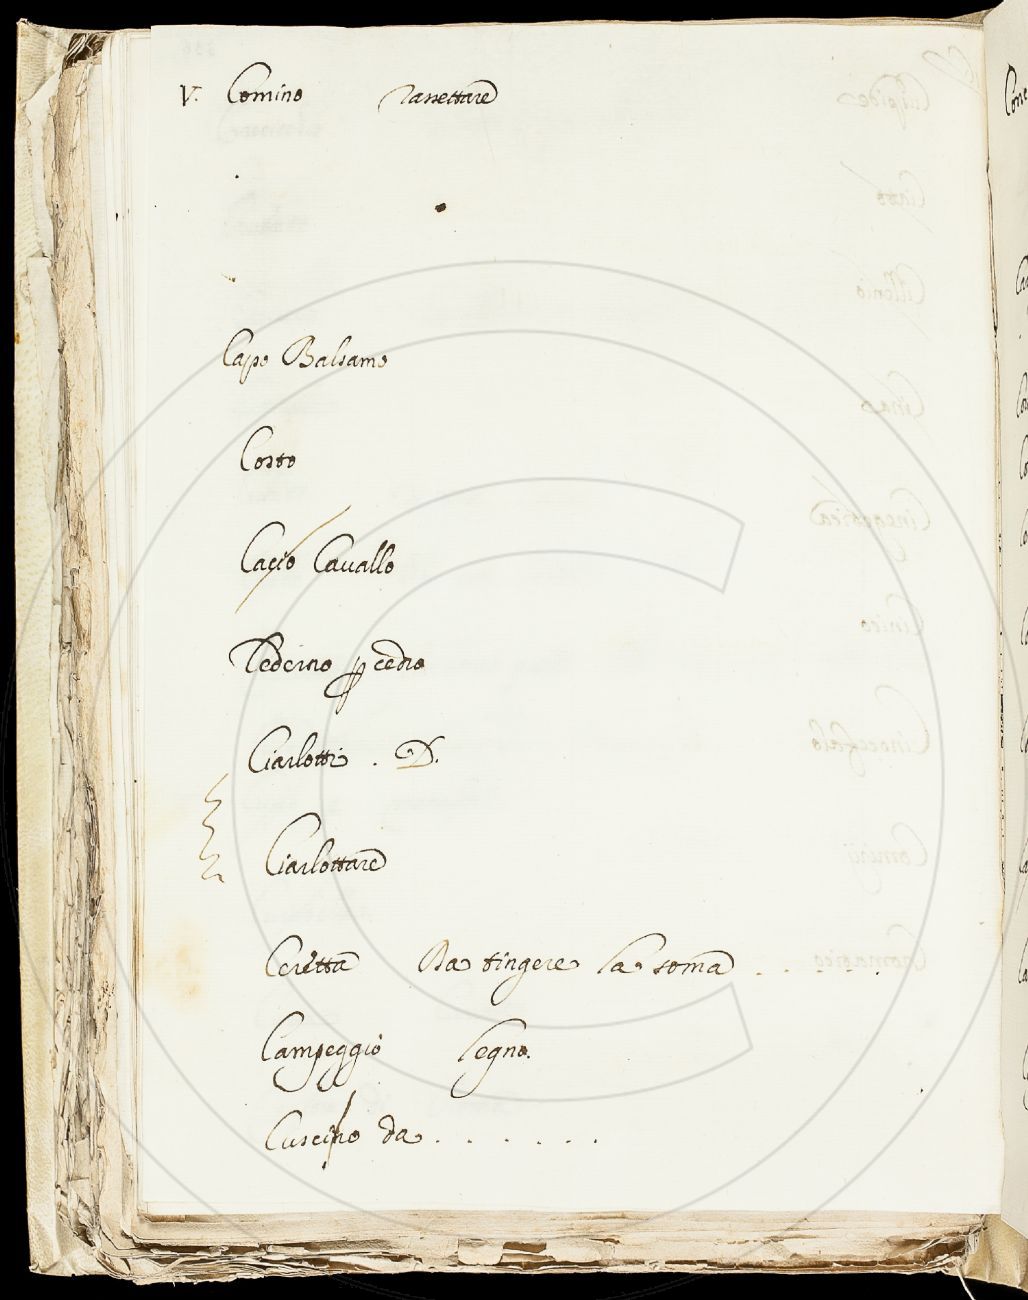 V. Comino Rassettare
Capo Balsamo
Costo
Cacio Cauallo
Cedro
Ciarlotti . D.
Ciarlottare
Da tingere la
Campeggio legno.
Cuscino da . . . . . .